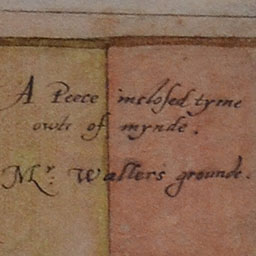 A Peece inclosed tyme
owte of mynde.
Mr. Wallers grounde.